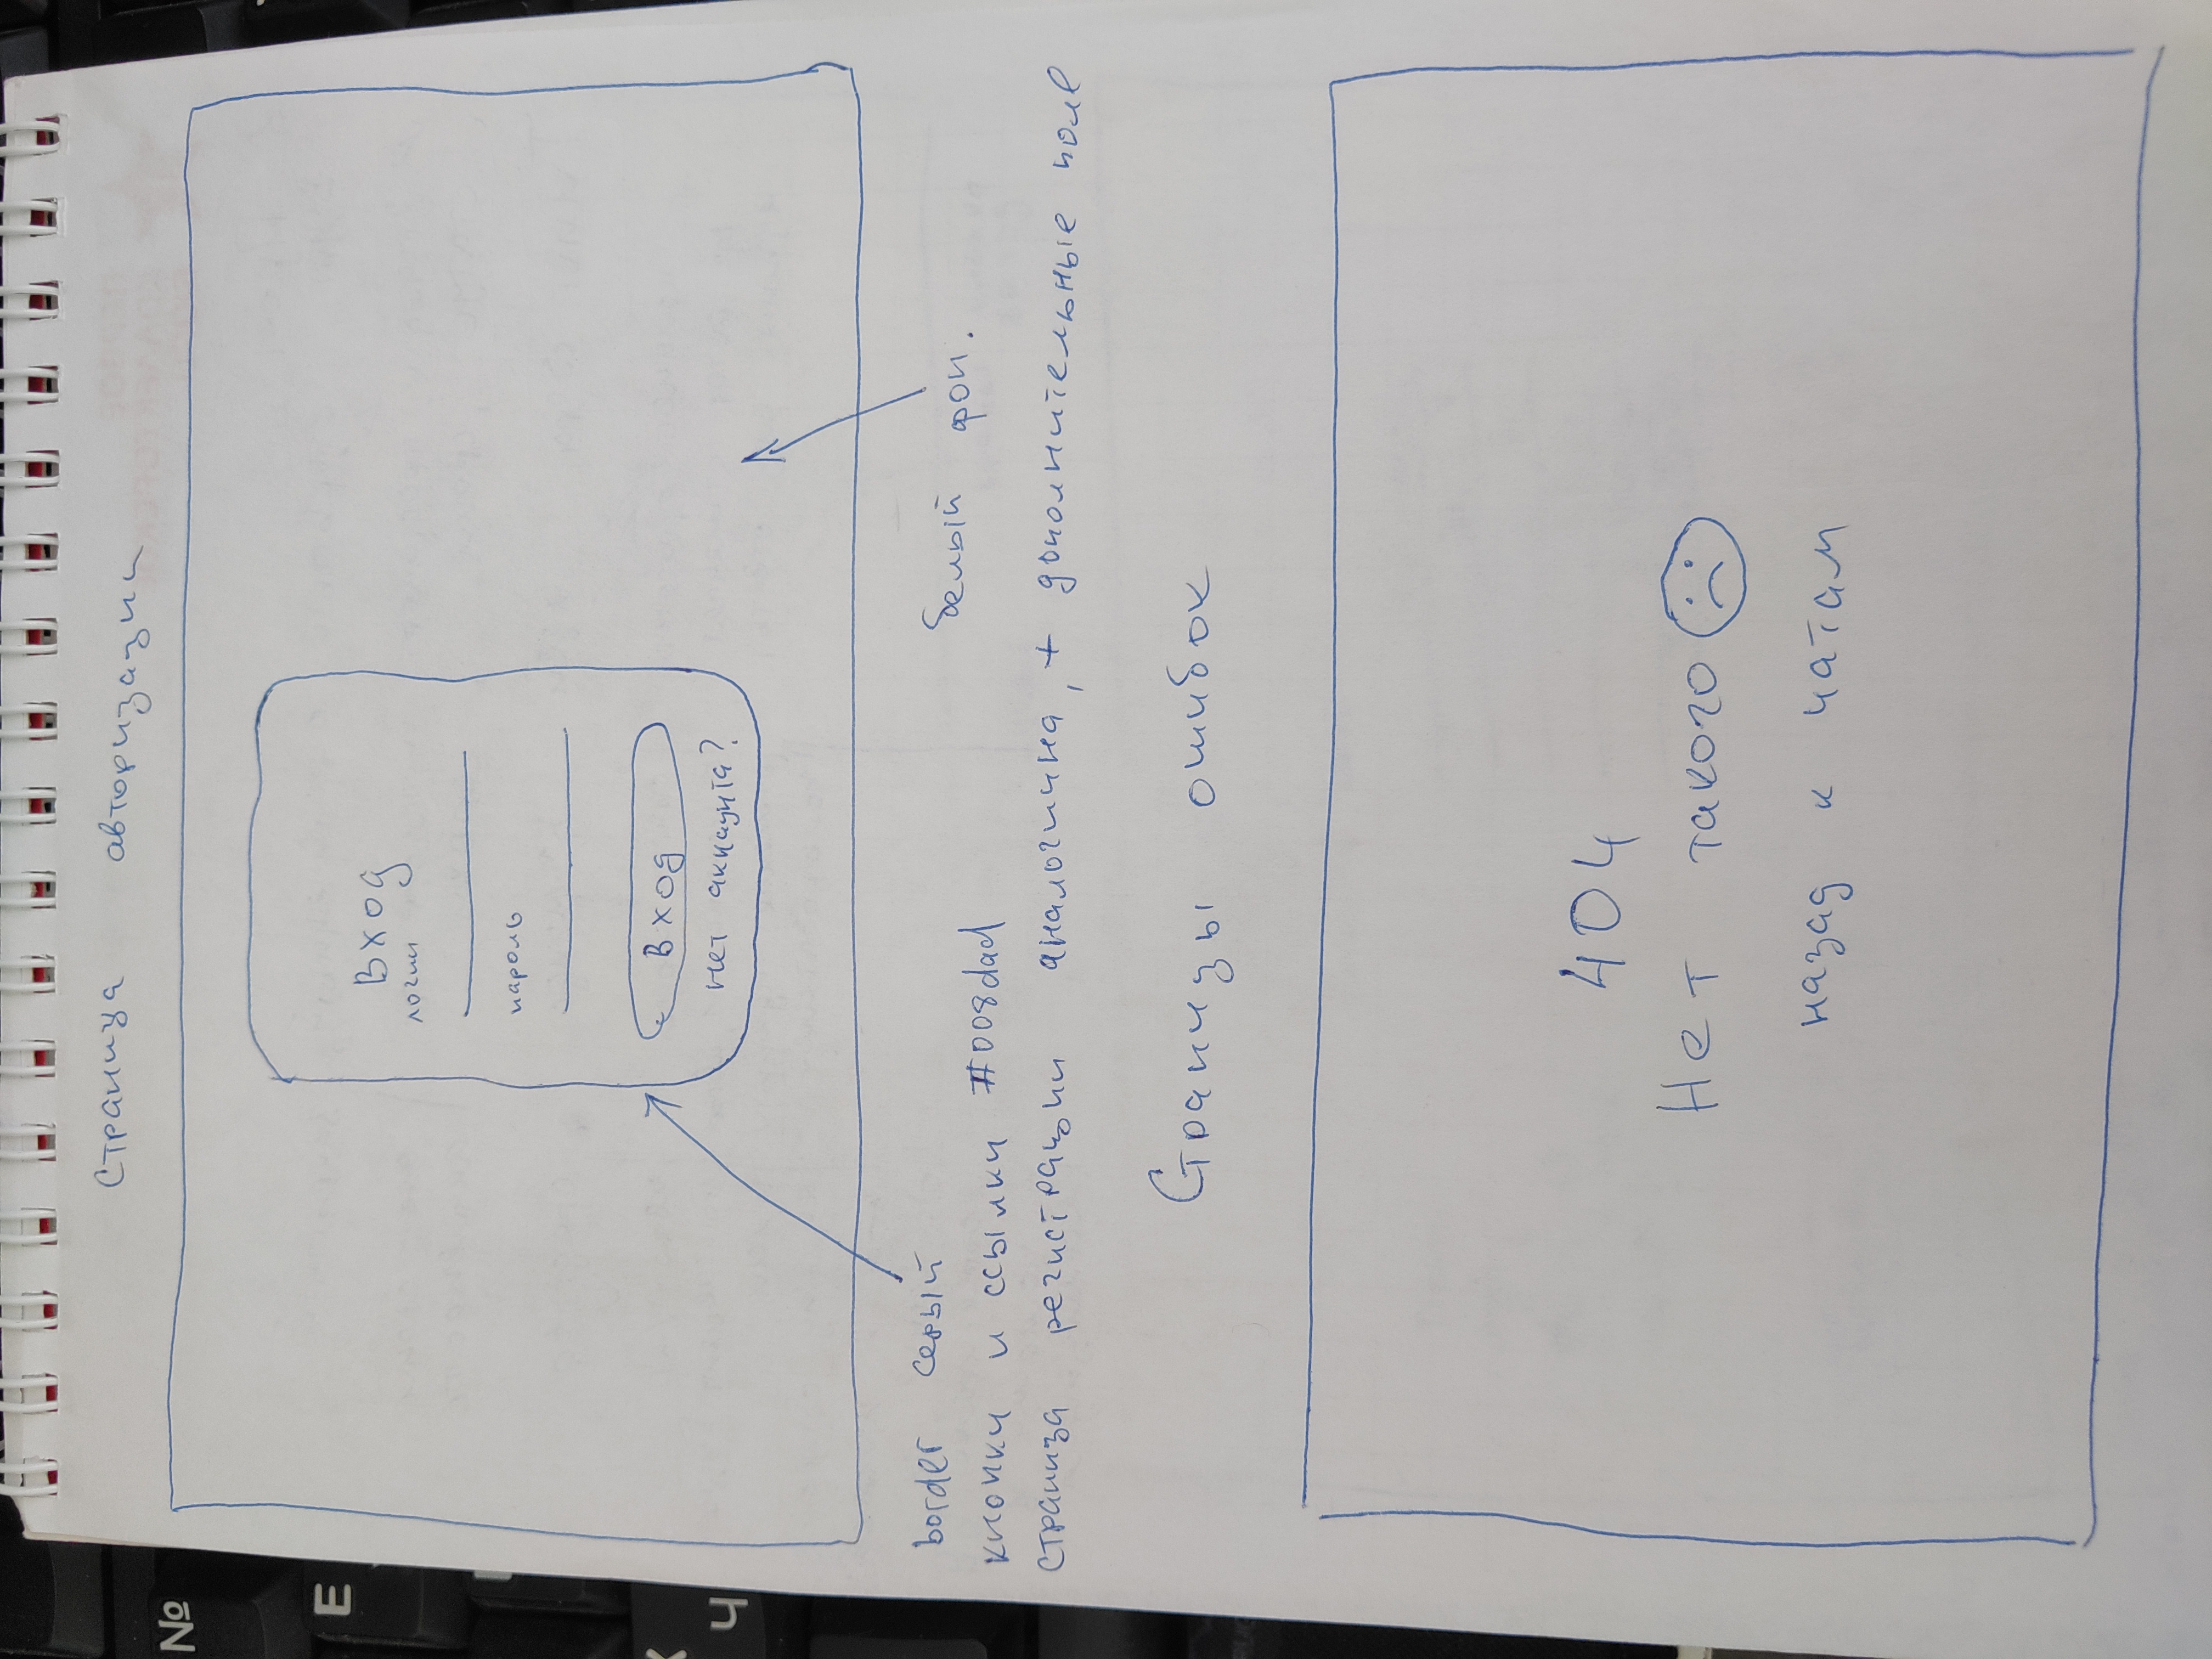 №
Е
Ч
страница авторизации
Вход
логин
пароль
Вход
нет аккаунта?
border серый
белый фон.
кнопки и ссылки #008dad
страница регистрации аналогична, + дополнительные поле
Страницы ошибок
404
Нет такого
назад к чатам